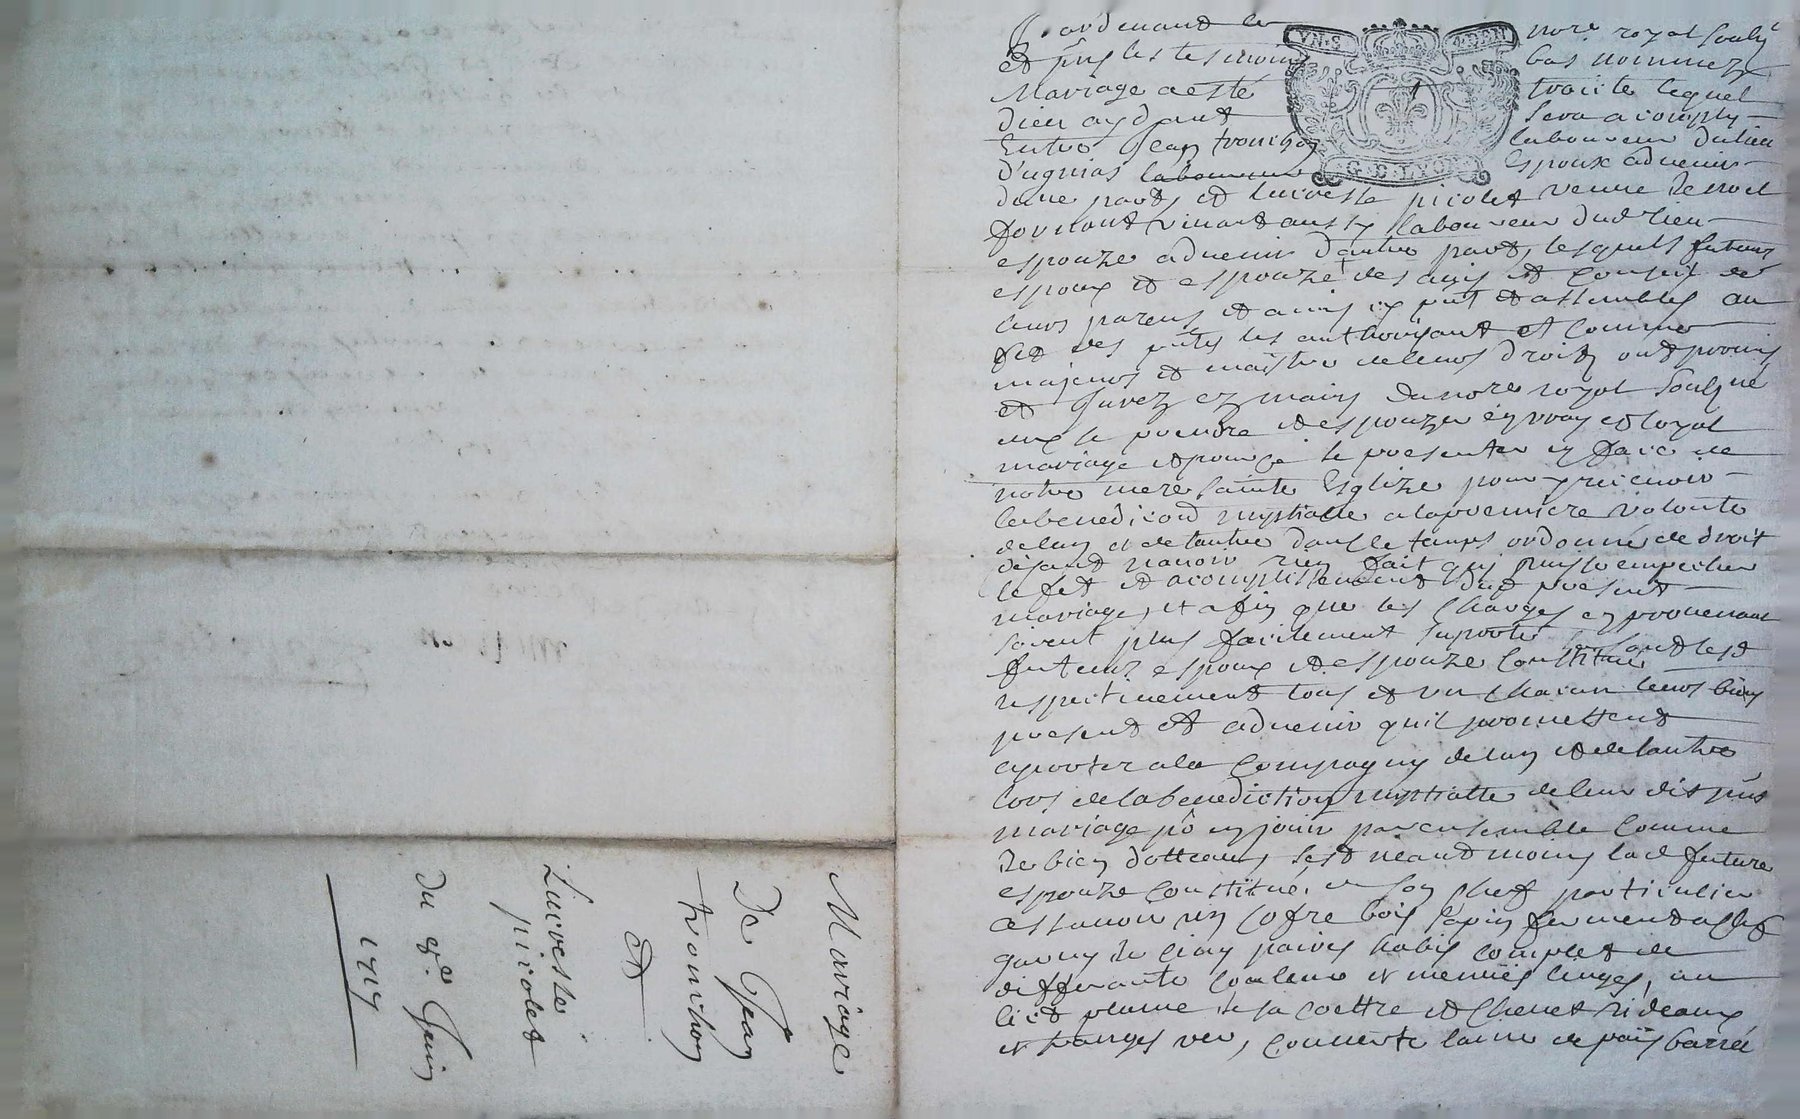 Mariage
De Jean
tronchon
et
Lucresse
picolet
Du 8e Juin
1719
VN·S 4·DEN
G·D·LYON
Pardevant le nore royal soubzné
et pnts les tesmoins bas nommez
Mariage a esté traicte lequel
dieu aydant sera acomply
Entre Jean tronchon laboureur du lieu
D'ugnias laboureur Espoux advenir
dune part, et lucresse picolet veuve de noel
vivant aussy laboureur dud lieu
espouze advenir d'autre part, lesquels futeurs
espoux et espouze des avis et conseil de
leurs parens et amis icy pnt et assemblés au
fet des pntes les authorisant et comme
majeurs et maistre de leurs droits ont promis
et Jurez ez mains du nore royal soubzné
eux se prendre et espouzer en vray et loyal
mariage et pour ce se presenter en face de
notre mere sainte Esglize pour y recevoir
la benediction nuptialle a la premiere volonte
de lun et de lautre dans le temps ordonné de droit
disant navoir rien fait qui puisse empecher
le fet et acomplissement dud present
mariage, et afin que les charges en provenant
soient plus facilement suporté se sont lesd
futeurs espoux et espouze constitué
respectivement tous et un chacun leurs biens
present et advenir quil promettent
aporter a la compagny de lun et de lautre
lors de la benediction nuptialle de leur dit pnt
mariage po en jouir par ensemble comme
de bien dotteaux, sest neantmoins lad future
espouze constitué, de son chef particulier
assavoir un cofre bois sapin fermant a clef
garny de cinq paires habis complet de
differante couleur et menües linges, un
lict plume de sa coettre et chevet rideaux
et franges ver, couverte laine de païs barrée